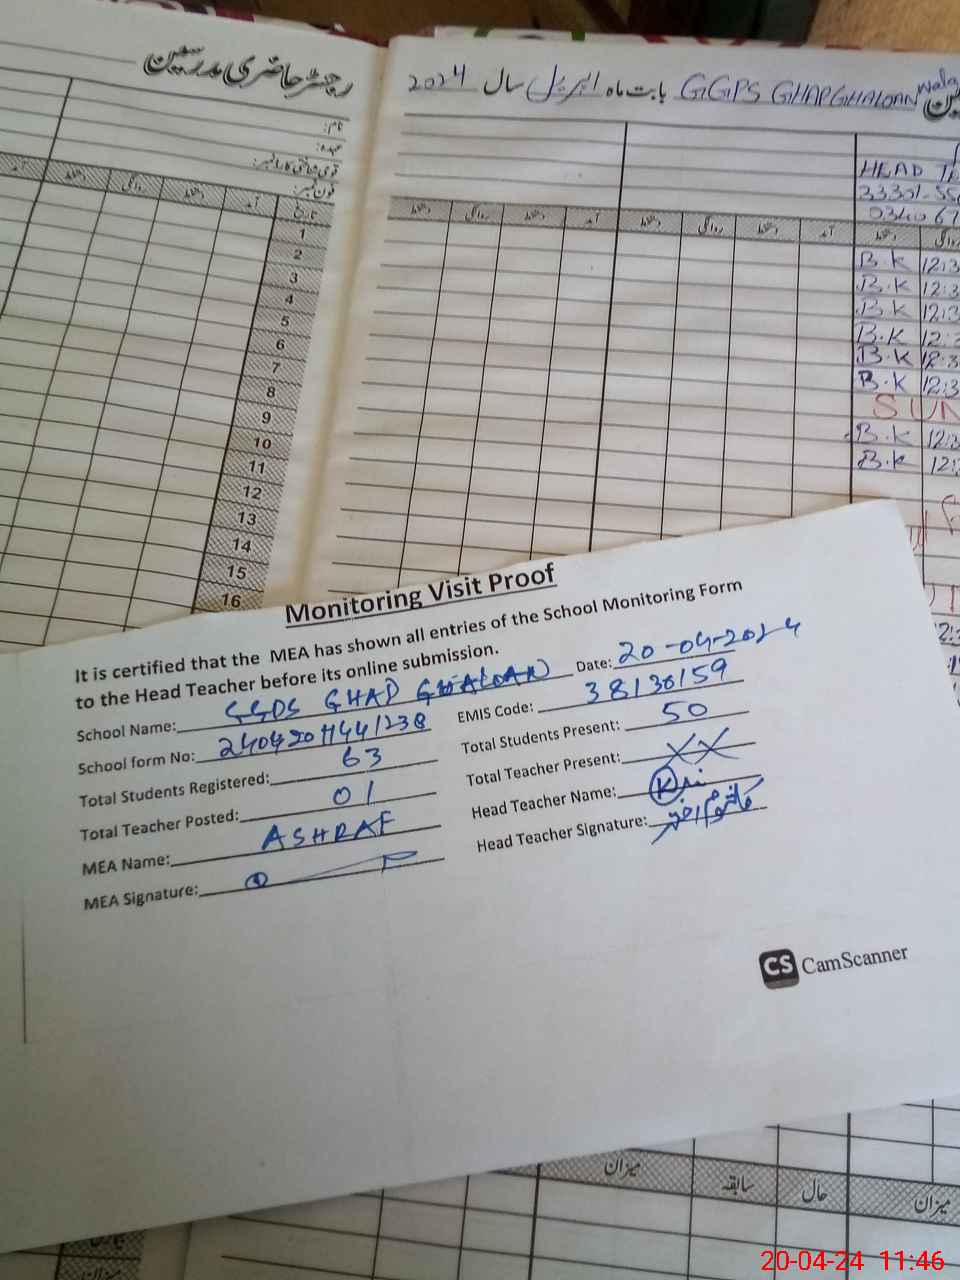 رجسٹر حاضری مدرسین
نام:
عہدہ:
قومی شناختی کارڈ نمبر:
فون نمبر:
تاریخ آمد دستخط روانگی دستخط
1
2
3
4
5
6
7
8
9
10
11
12
13
14
15
16
GGPS GHAPGHALOAN wala بابت ماہ اپریل سال 2024
HEAD
33301-55
0340 67
آمد دستخط روانگی دستخط آمد دستخط روانگی دستخط
روانگی دستخط
B.K 12:3
B.K 12:3
B.K 12:3
B.K 12:3
B.K 12:3
B.K 12:3
SUN
B.K 12:3
B.K 12:
Monitoring Visit Proof
It is certified that the MEA has shown all entries of the School Monitoring Form
to the Head Teacher before its online submission.
Date: 20-04-2024
School Name: GGPS GHAP GHALOAN
EMIS Code: 38130159
School form No:
Total Students Present: 50
Total Students Registered: 63
Total Teacher Present: XX
Total Teacher Posted: 01
Head Teacher Name:
MEA Name: ASHRAF
Head Teacher Signature:
MEA Signature:
CS CamScanner
میزان سابقہ حال میزان
میزان
20-04-24 11:46